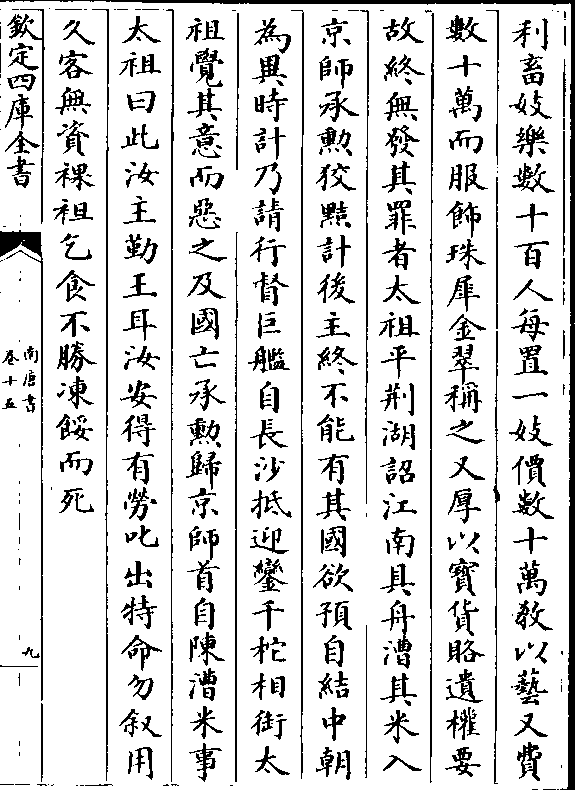 利畜妓樂數十百人每置一妓價數十萬教以藝又費
數十萬而服飾珠犀金翠稱之又厚以寳貨賂遺權要
故終無發其罪者太祖平荆湖詔江南具舟漕其米入
京師承勲狡黠計後主終不能有其國欲預自結中朝
為異時計乃請行督巨艦自長沙抵迎鑾千柁相銜太
祖覺其意而惡之及國亡承勲歸京師首自陳漕米事
太祖曰此汝主勤王耳汝安得有勞叱出特命勿叙用
久客無資裸袒乞食不勝凍餒而死
欽定四庫全書
南唐書
卷十五
九